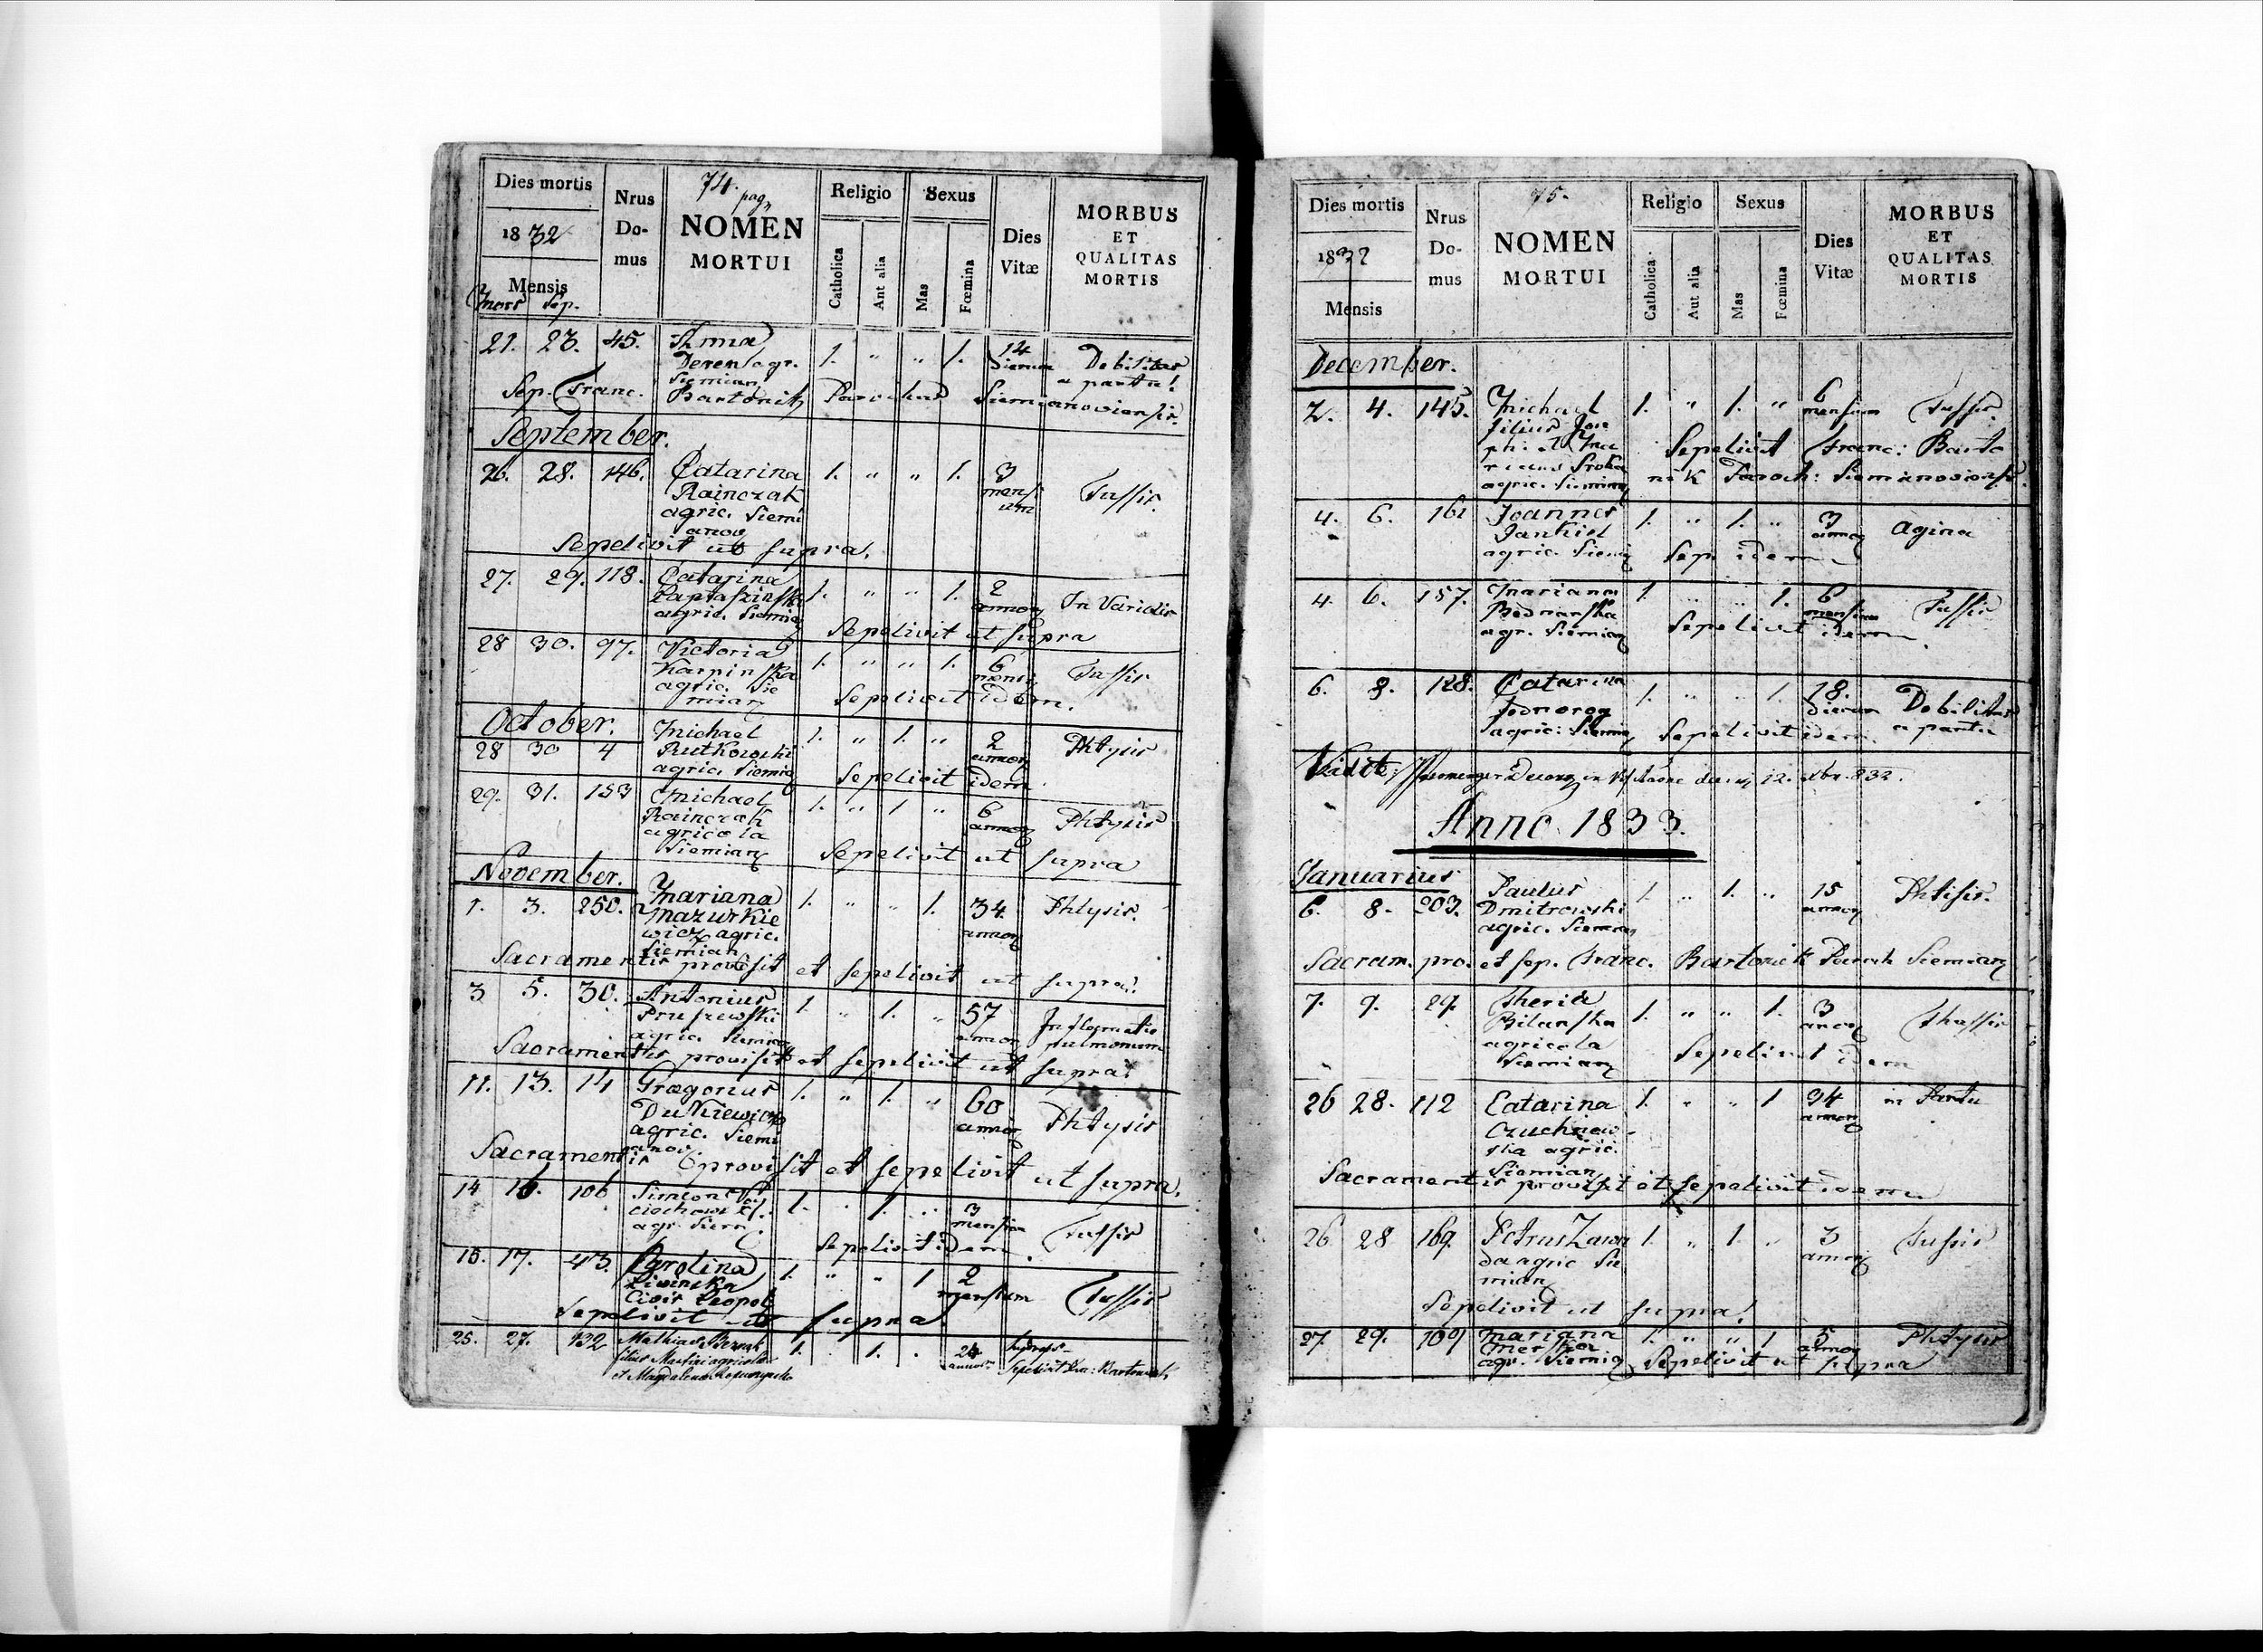 Dies mortis
1832
Mensis
Mors Sep.
Nrus
Do-
mus
74.
pag
NOMEN
MORTUI
Religio
Catholica
Aut alia
Sexus
Mas
Fœmina
Dies
Vitæ
MORBUS
ET
QUALITAS
MORTIS
21. 23. 45. Anna 1. " " 1. 14 Debilitas
Deren agr. dierum a partu!
Siemian
Sep. Franc. Bartonik Parochus Siemianoviensis.
September.
26. 28. 146. Catarina 1. " " 1. 3 Tussis.
Rainczak mensi
agric. Siemi um
anov
Sepelivit ut supra.
27. 29. 118. Catarina 1. " " 1. 2 In Variolis
annor
agric. Siemian
Sepelivit ut supra
28 30. 97. Victoria 1. " " 1. 6 Tussis
Karpinska mens.
agric. Sie
mian Sepelivit idem.
October.
28 30 4 Michael 1. " 1. " 2 Phtysis
Rutkowski annor
agric. Siemia Sepelivit idem.
29. 31. 153 Michael 1. " 1 " 6 Phtysis
Rainczak annor
agricola
Siemian Sepelivit ut supra
November.
1. 3. 250. Mariana 1. " " 1. 34. Phtysis.
Mazurkie annor
wicz agric.
Siemian
Sacramentis provisit et sepelivit ut supra!
3 5. 30. Antonius 1. " 1. " 57 Inflamatio
Pruszewski annor pulmonum
agric. Siemian
Sacramentis provisit et sepelivit ut supra!
11. 13. 14 Gregorius 1. " 1. " 60 Phtysis
Dutkiewicz annor
agric. Siemi
anov.
Sacramentis provisit et sepelivit ut supra.
14 16. 106 Simeon Woy 1. " 1. " 3 Tussis
ciechows mensium
agr. Siem. Sepelivit idem.
15. 17. 43. Carolina 1. " " 1 2 Tussis
mensium
Civis Leopol
Sepelivit ut supra!
25. 27. 132 Mathias 1. . 1. . 24
filius Martini agricolae annor Sepelivit Fra: Bartonik
et Magdalena
Dies mortis
1832
Mensis
Nrus
Do-
mus
75.
NOMEN
MORTUI
Religio
Catholica
Aut alia
Sexus
Mas
Fœmina
Dies
Vitæ
MORBUS
ET
QUALITAS
MORTIS
December.
2. 4. 145. Michael 1. " 1. " 6 Tussis.
filius Jose mensium
phi et Ma Sepelivit Franc: Barto
rianna Sroka nik Paroch: Siemianoviensis.
agric. Siemian
4. 6. 161 Joannes 1. " 1. " 3 Agina
Jankiel annor
agric. Siemi Sep idem
4. 6. 157. Marianna 1. " " 1. 6 Tussis
Bednarska mensium
agr. Siemian Sepelivit idem
6. 8. 128. Catarina 1. " " 1 18. Debilitas
Jednorog dierum a partu
agric: Siemia Sepelivit idem.
Vidit 12. 832.
Anno 1833.
Januarius
6. 8. 203. Paulus 1. " 1. " 15 Phtisis.
Dmitrowski annor
agric. Siemian
Sacram. pro. et sep. Franc. Bartonik Paroch Siemian
7. 9. 29. 1. " " 1. 3
Bilanska annor
agricola Sepelivit idem
Siemian
26 28. 112 Catarina 1. " " 1 34 in Partu
Czuchnow annor
ska agric.
Siemian
Sacramentis provisit et sepelivit idem
26 28 169. Petrus Zawa 1. " 1. " 3 Tussis
da agric Sie annor
mian
Sepelivit ut supra!
27. 29. 109 Mariana 1. " " 1 5 Phtysis
annor
agr. Siemia Sepelivit ut supra